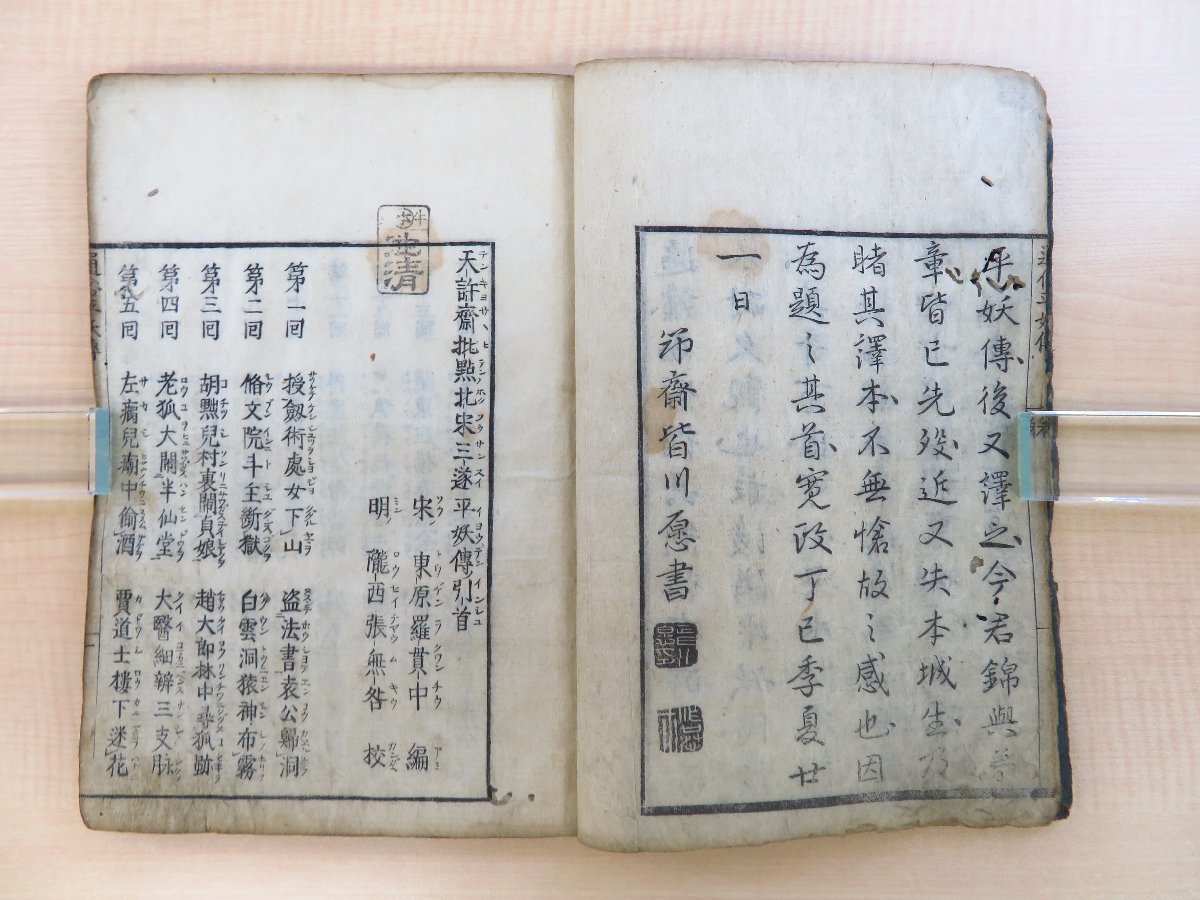 平妖傳後又譯之今君錦與夢
章皆已先歿近又失本城生乃
睹其譯本不無愴故之感也因
為題之其首寛政丁巳季夏廿
一日
節齋皆川愿書
天許齋批點北宋三遂平妖傳引首
宋 東原羅貫中 編
明 隴西張無咎 校
第一囘 授劔術處女下山 盗法書袁公歸洞
第二囘 脩文院斗主斷獄 白雲洞猿神布霧
第三囘 胡黜兒村裏閙貞娘 趙大郎林中尋狐跡
第四囘 老狐大閙半仙堂 大醫細辨三支脉
第五囘 左瘸兒廟中偷酒 賈道士樓下迷花